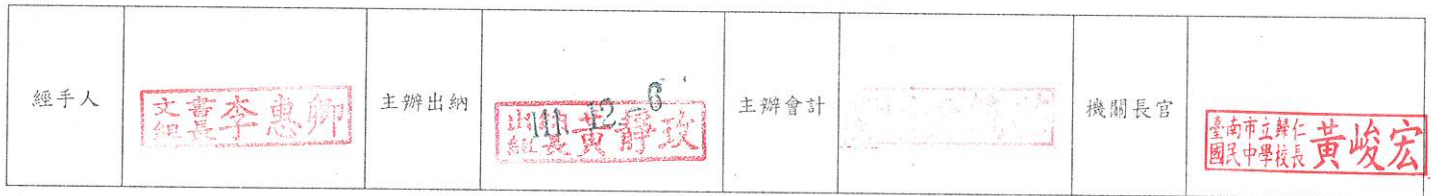 經手人
文書組長 李惠卿
主辦出納
出納組長 黃靜玫
111. 12. -6
主辦會計
機關長官
臺南市立歸仁國民中學校長 黃峻宏